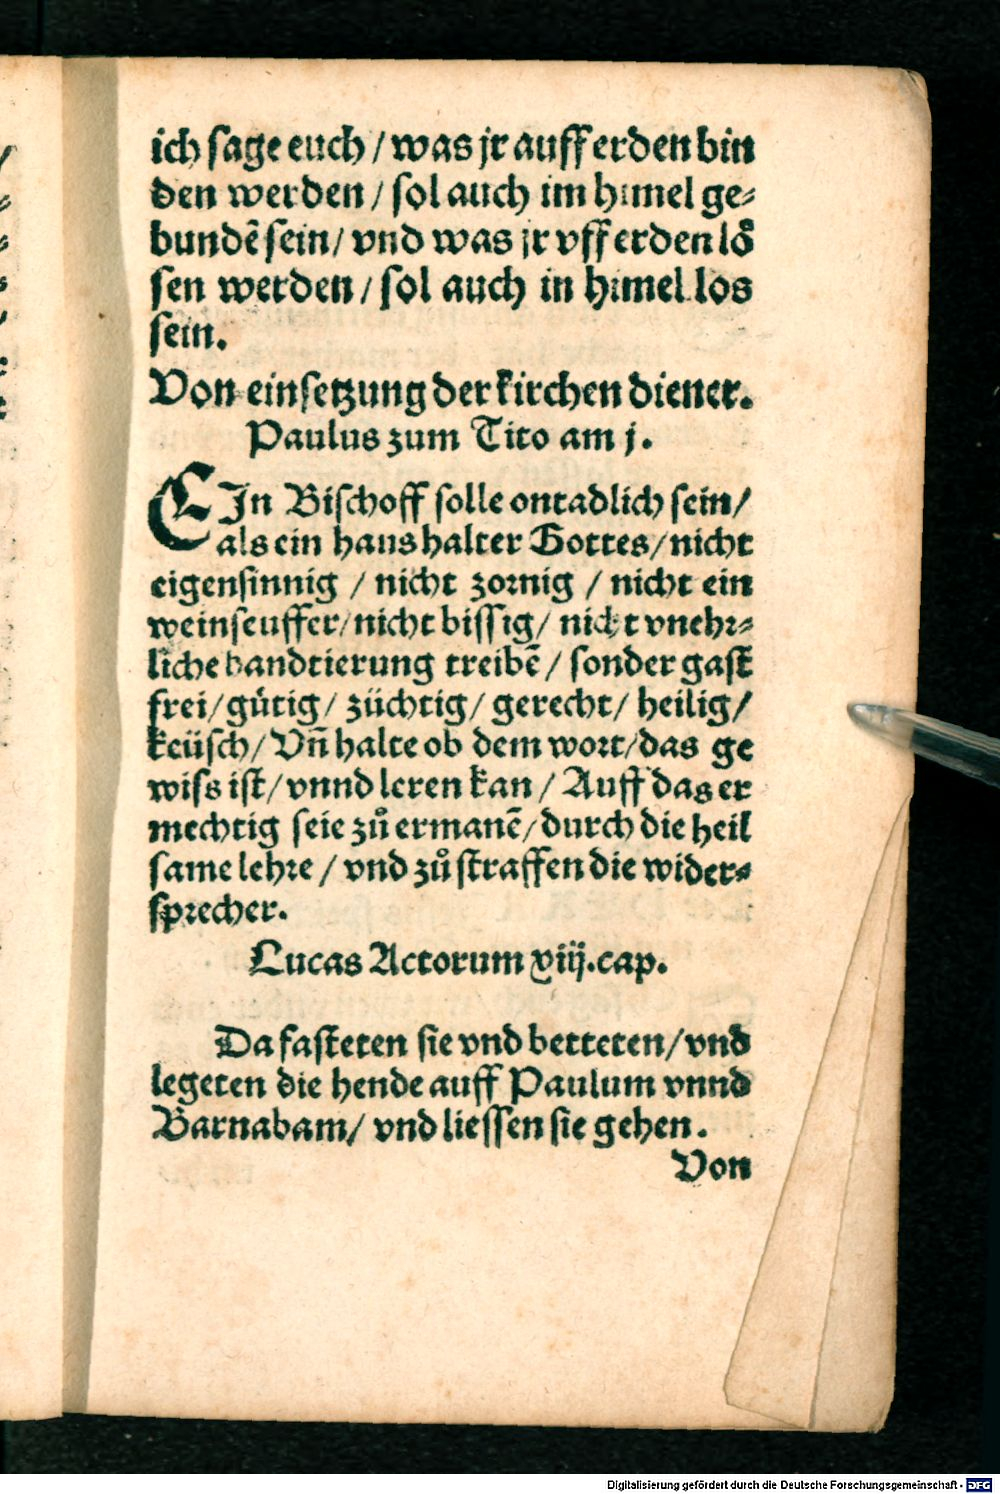 ich sage euch / was jr auff erden bin
den werden / sol auch im himel ge⸗
bundē sein / vnd was jr vff erden lo᷑
sen werden / sol auch in himel los
sein.
Von einsetzung der kirchen diener.
Paulus zum Tito am j.
EIn Bischoff solle ontadlich sein /
als ein haushalter Gottes / nicht
eigensinnig / nicht zornig / nicht ein
weinseuffer / nicht bissig / nicht vnehr⸗
liche handtierung treibē / sonder gast
frei / gütig / züchtig / gerecht / heilig /
keüsch / Vn̄ halte ob dem wort / das ge
wiss ist / vnnd leren kan / Auff das er
mechtig seie zů ermanē / durch die heil
same lehre / vnd zů straffen die wider⸗
sprecher.
Lucas Actorum xiij. cap.
Da fasteten sie vnd betteten / vnd
legeten die hende auff Paulum vnnd
Barnabam / vnd liessen sie gehen.
Von
Digitalisierung gefördert durch die Deutsche Forschungsgemeinschaft - DFG